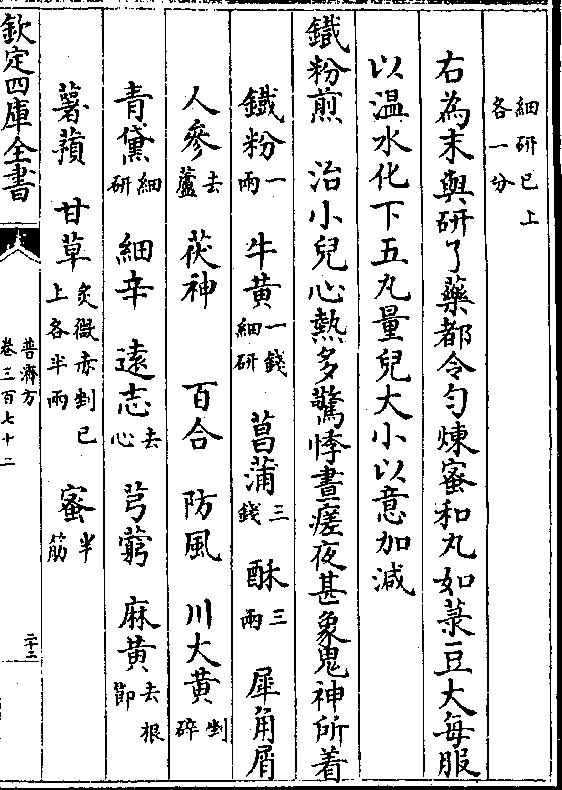 細研已上各一分
右為末與研了藥都令勻煉蜜和丸如菉豆大每服
以温水化下五丸量兒大小以意加減
鐵粉煎　治小兒心熱多驚悸晝瘥夜甚象鬼神所着
鐵粉一兩　牛黄一錢細研　菖蒲三錢　酥三兩　犀角屑
人參去蘆　茯神　百合　防風　川大黄剉碎
青黛細研　細辛　遠志去心　芎藭　麻黄去根節
薯蕷　甘草炙微赤剉已上各半兩　蜜半筋
欽定四庫全書
普濟方
卷三百七十二
二十三